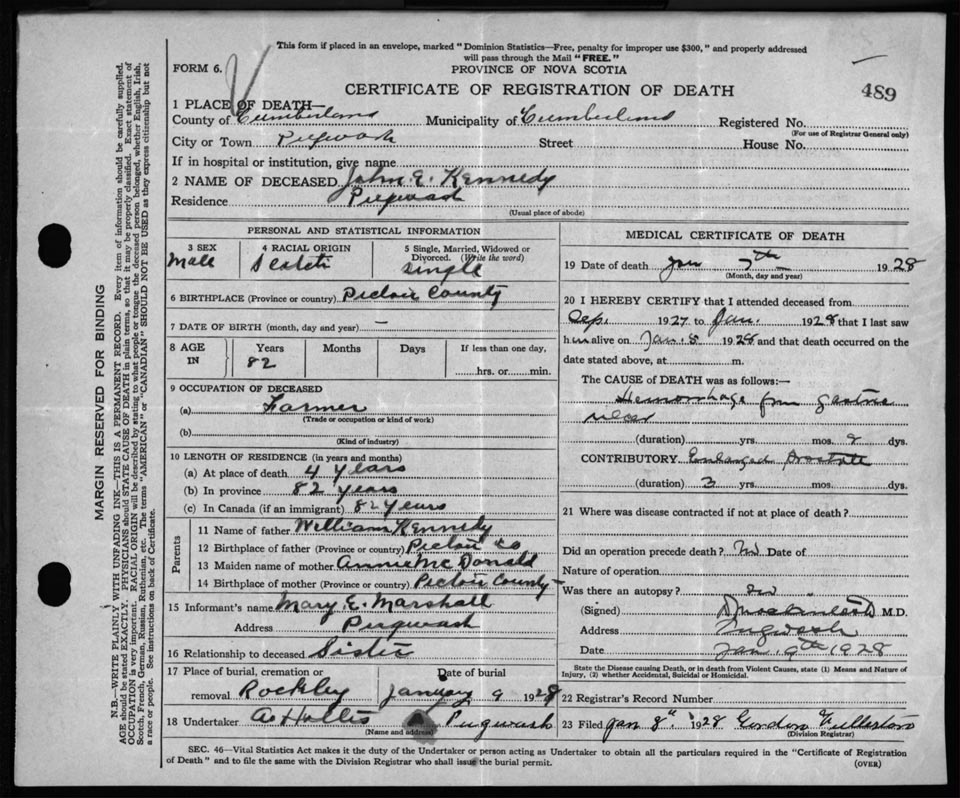 This form if placed in an envelope, marked "Dominion Statistics—Free, penalty for improper use $300," and properly addressed
will pass through the Mail "FREE."
FORM 6.
PROVINCE OF NOVA SCOTIA
CERTIFICATE OF REGISTRATION OF DEATH
489
1 PLACE OF DEATH—
County of Cumberland Municipality of Cumberland Registered No.
(For use of Registrar General only)
City or Town Pugwash Street House No.
If in hospital or institution, give name
2 NAME OF DECEASED John E. Kennedy
Residence Pugwash
(Usual place of abode)
PERSONAL AND STATISTICAL INFORMATION
3 SEX 4 RACIAL ORIGIN 5 Single, Married, Widowed or
Divorced. (Write the word)
Male Scotch single
6 BIRTHPLACE (Province or country) Pictou County
7 DATE OF BIRTH (month, day and year) —
8 AGE IN Years Months Days If less than one day,
82 hrs. or min.
9 OCCUPATION OF DECEASED
(a) Farmer
(Trade or occupation or kind of work)
(b)
(Kind of industry)
10 LENGTH OF RESIDENCE (in years and months)
(a) At place of death 4 years
(b) In province 82 years
(c) In Canada (if an immigrant) 82 years
Parents
11 Name of father William Kennedy
12 Birthplace of father (Province or country) Pictou Co
13 Maiden name of mother Annie McDonald
14 Birthplace of mother (Province or country) Pictou County
15 Informant's name Mary E. Marshall
Address Pugwash
16 Relationship to deceased Sister
17 Place of burial, cremation or Date of burial
removal Rockley January 9 1928
18 Undertaker A Hollis Pugwash
(Name and address)
MEDICAL CERTIFICATE OF DEATH
19 Date of death Jan 7th 1928
(Month, day and year)
20 I HEREBY CERTIFY that I attended deceased from
Sep. 1927 to Jan. 1928 that I last saw
him alive on Jan. 5 1928 and that death occurred on the
date stated above, at m.
The CAUSE OF DEATH was as follows:—
Hemorrhage from gastric
ulcer
(duration) yrs. mos. 2 dys.
CONTRIBUTORY Enlarged Prostate
(duration) 3 yrs. mos. dys.
21 Where was disease contracted if not at place of death?
Did an operation precede death? No Date of
Nature of operation
Was there an autopsy? no
(Signed) M.D.
Address Pugwash
Date Jan. 9th 1928
State the Disease causing Death, or in death from Violent Causes, state (1) Means and Nature of
Injury, (2) whether Accidental, Suicidal or Homicidal.
22 Registrar's Record Number
23 Filed Jan 8" 1928 Gordon Fullerton
(Division Registrar)
SEC. 46—Vital Statistics Act makes it the duty of the Undertaker or person acting as Undertaker to obtain all the particulars required in the "Certificate of Registration
of Death" and to file the same with the Division Registrar who shall issue the burial permit.
(OVER)
MARGIN RESERVED FOR BINDING
N.B.—WRITE PLAINLY WITH UNFADING INK—THIS IS A PERMANENT RECORD. Every item of information should be carefully supplied.
AGE should be stated EXACTLY. PHYSICIANS should STATE CAUSE OF DEATH in plain terms, so that it may be properly classified. Exact statement of
OCCUPATION is very important. RACIAL ORIGIN will be described by stating to what people or tongue the deceased person belonged, whether English, Irish,
Scotch, French, German, Russian, Ruthenian, etc. The terms "AMERICAN" or "CANADIAN" SHOULD NOT BE USED as they express citizenship but not
a race or people. See instructions on back of Certificate.